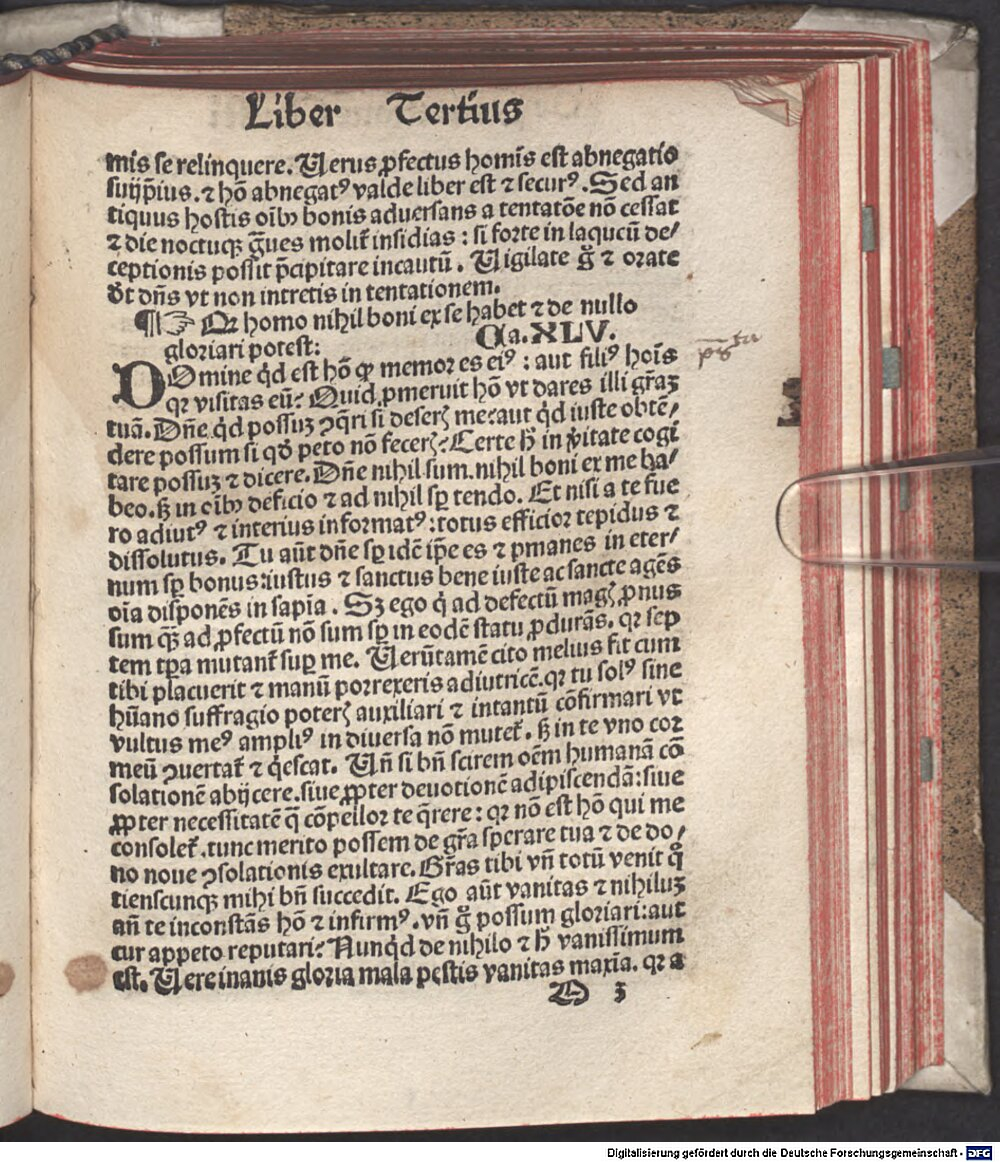 Liber Tertius
mis se relinquere. Uerus ꝓfectus homīs est abnegatio
suijp̄ius. ⁊ hō abnegatꝰ valde liber est ⁊ securꝰ. Sed an
tiquus hostis oībꝰ bonis aduersans a tentatōe nō cessat
⁊ die noctuqꝫ g̃ues molit̃ insidias : si forte in laqueū de/
ceptionis possit p̄cipitare incautū. Uigilate g̃ ⁊ orate
dt dn̄s vt non intretis in tentationem.
¶☞ Qꝛ homo nihil boni ex se habet ⁊ de nullo
gloriari potest: Ca. XLV.
DOmine qd̓ est hō ꝙ memor es eiꝰ : aut filiꝰ hoīs
qꝛ visitas eū? Quid ꝓmeruit hō vt dares illi gr̄aꝫ
tuā. Dn̄e qd̓ possuꝫ ꝯq̄ri si deserꝭ me: aut qd̓ iuste obtē/
dere possum si qd̓ peto nō fecerꝭ? Certe h̓ in v̓itate cogi
tare possuꝫ ⁊ dicere. Dn̄e nihil sum. nihil boni ex me ha/
beo. sꝫ in oībꝰ deficio ⁊ ad nihil sꝑ tendo. Et nisi a te fue
ro adiutꝰ ⁊ interius informatꝰ: totus efficior tepidus ⁊
dissolutus. Tu aūt dn̄e sꝑ idē ip̄e es ⁊ ꝑmanes in eter/
num sꝑ bonus: iustus ⁊ sanctus bene iuste ac sancte agēs
oīa disponēs in sapīa. Sꝫ ego q̓ ad defectū magꝭ ꝓnus
sum qꝫ̄ ad ꝓfectū nō sum sꝑ in eodē statu ꝑdurās. qꝛ sep
tem tꝑa mutant̃ suꝑ me. Uerūtamē cito melius fit cum
tibi placuerit ⁊ manū porrexeris adiutricē. qꝛ tu solꝰ sine
hūano suffragio poterꝭ auxiliari ⁊ intantū cōfirmari vt
vultus meꝰ ampliꝰ in diuersa nō mutet̃. sꝫ in te vno cor
meū ꝯuertat̃ ⁊ q̓escat. Un̄ si bn̄ scirem oēm humanā cō
solationē abijcere. siue ꝓpter deuotionē adipiscendā: siue
ꝓpter necessitatē q̄ cōpellor te q̄rere : qꝛ nō est hō qui me
consolet̃. tunc merito possem de gr̄a sperare tua ⁊ de do/
no noue ꝯsolationis exultare. Gr̄as tibi vn̄ totū venit q̓
tienscunqꝫ mihi bn̄ succedit. Ego aūt vanitas ⁊ nihiluꝫ
an̄ te inconstās hō ⁊ infirmꝰ. vn̄ g̃ possum gloriari: aut
cur appeto reputari? Nunqd̓ de nihilo ⁊ h̓ vanissimum
est. Uere inanis gloria mala pestis vanitas maxīa. qꝛ a
O 3
Digitalisierung gefördert durch die Deutsche Forschungsgemeinschaft - DFG